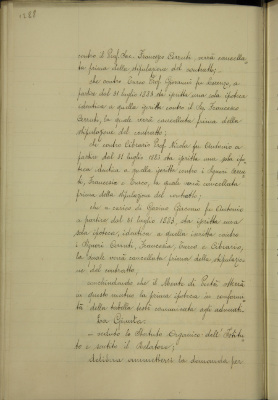 1288
contro il Prof. Avv. Francesco Cerruti, verrà cancellata
prima della stipulazione del contratto;
che contro Curcio Prof. Giovanni fu Lorenzo, a
partire dal 31 luglio 1883 sta iscritta una sola ipoteca
identica a quella iscritta contro il Sig. Francesco
Cerruti, la quale verrà cancellata prima della
stipulazione del contratto;
che contro Cibrario Prof. Nicola fu Antonio a
partire dal 31 luglio 1883 sta iscritta una sola ipo-
teca identica a quella iscritta contro i Signori
Francesco e Curcio, la quale verrà cancellata
prima della stipulazione del contratto;
che a carico di Giovanni fu Antonio
a partire dal 31 luglio 1883, sta iscritta una
sola ipoteca, identica a quella iscritta contro
i Signori Cerruti, Francesco, Curcio e Cibrario,
la quale verrà cancellata prima della stipulazio-
ne del contratto,
conchiudendo che il Monte di Pietà otterrà
in questo mutuo la prima ipoteca in conformi-
tà della tabella testè comunicata agli adunati.
La Giunta:
veduto lo Statuto Organico dell'Istitu-
to e sentito il Relatore;
delibera ammettersi la domanda per